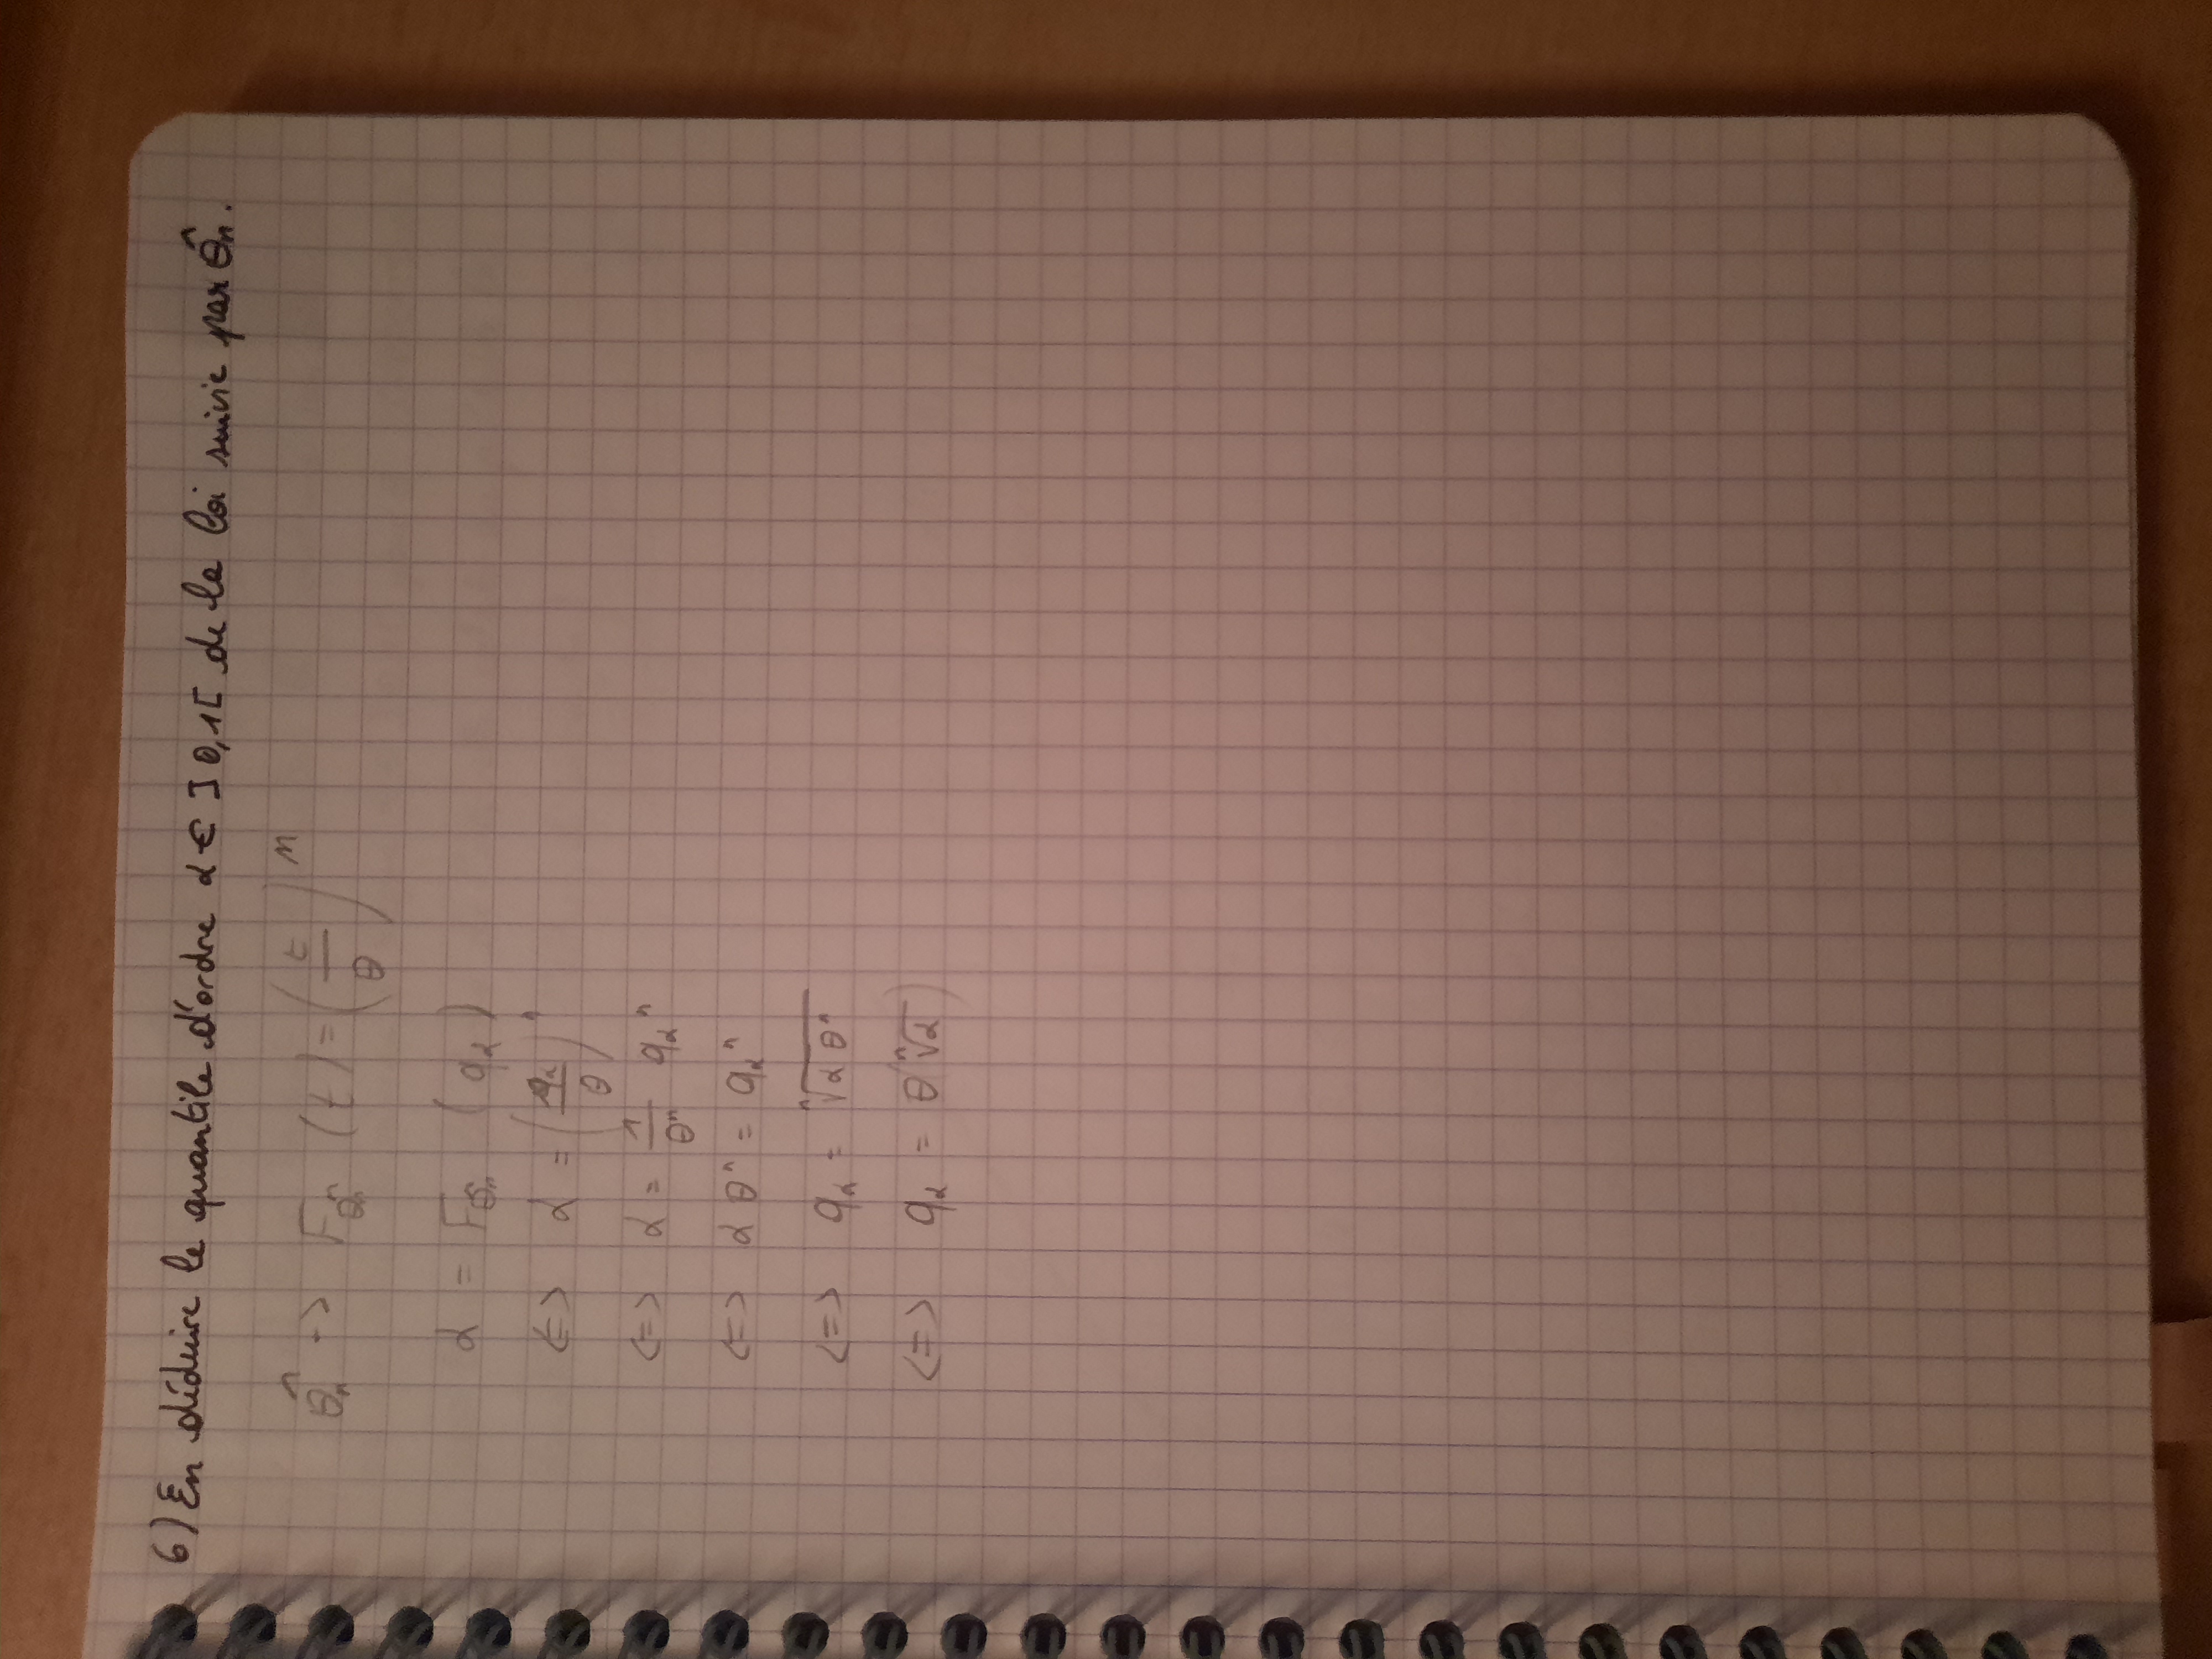 6) En déduire le quantile d'ordre α ∈ ]0,1[ de la loi suivie par θ̂n.
θ̂n -> Fθ̂n (t) = (t/θ)^n
α = Fθ̂n (qα)
<=> α = (qα/θ)^n
<=> α = 1/θ^n qα^n
<=> α θ^n = qα^n
<=> qα = ⁿ√(α θ^n)
<=> qα = θ(ⁿ√α)